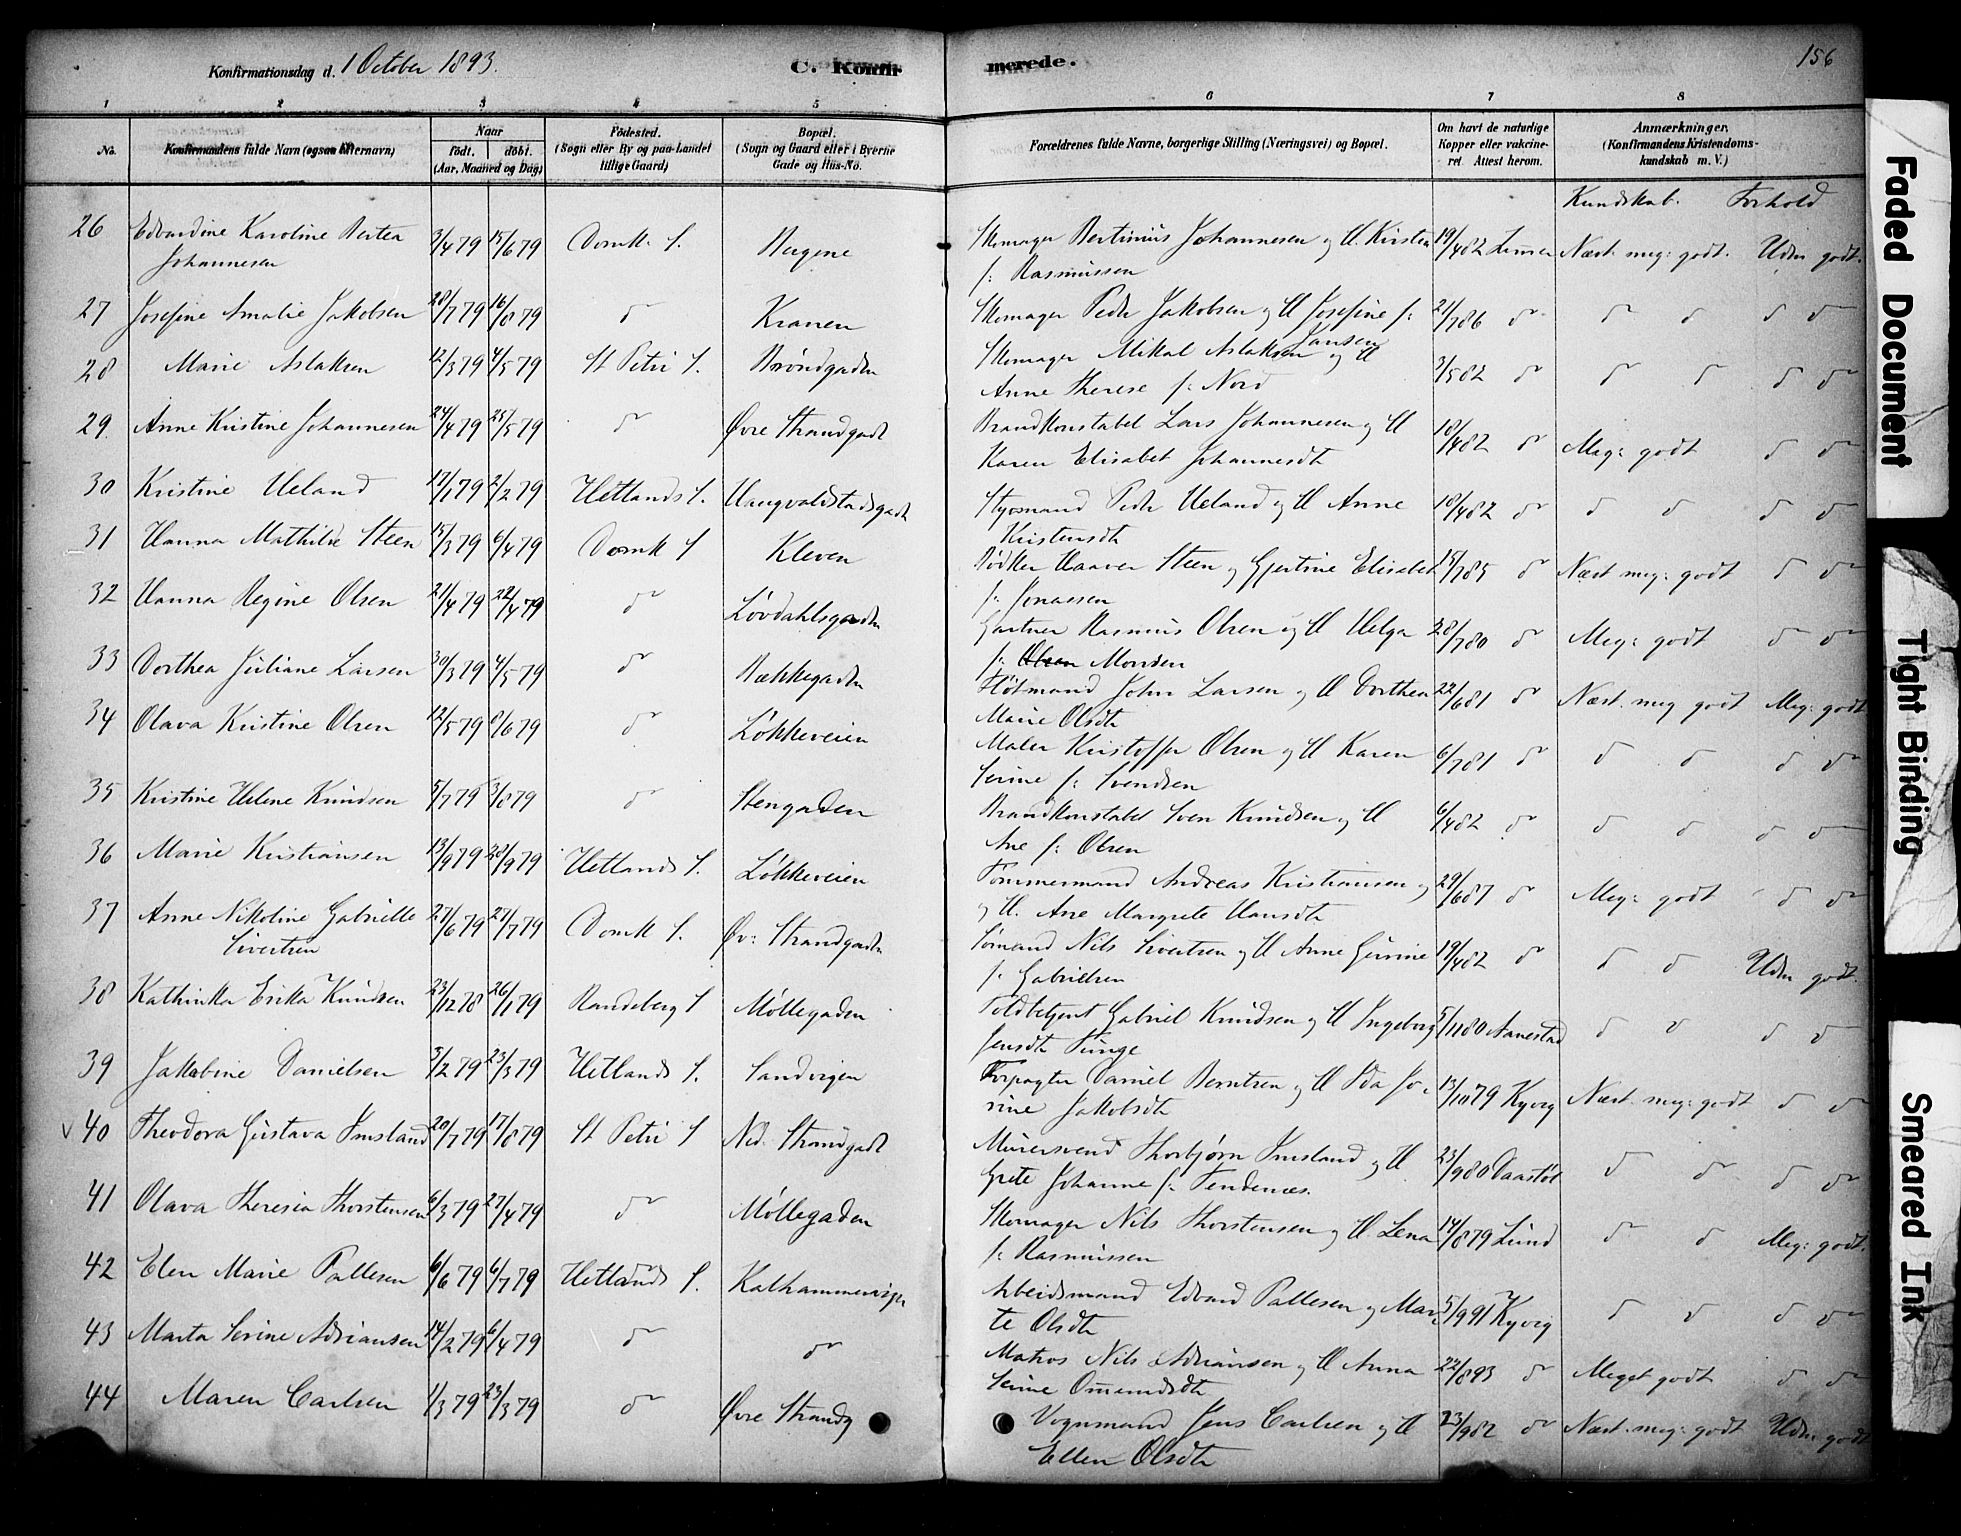 Konfirmationsdag d. 1 October 1893.
C. Konfir
merede.
156
1 2 3 4 5 6 7 8
No.
Konfirmandens fulde Navn (ogsaa Efternavn)
Naar
født. døbt.
(Aar, Maaned og Dag)
Fødested.
(Sogn eller By og paa Landet
tillige Gaard)
Bopæl.
(Sogn og Gaard eller i Byerne
Gade og Hus-No.
Forældrenes fulde Navne, borgerlige Stilling (Næringsvei) og Bopæl.
Om havt de naturlige
Kopper eller vakcine-
ret. Attest herom.
Anmærkninger.
(Konfirmandens Kristendoms-
kundskab m. V.)
Kundskab. Forhold
26 Edvardine Karoline Bertea Johannesen 3/4 79 15/6 79 Domk. S. Bergene Skomager Bertinius Johannesen og H. Kirsten f: Rasmussen 19/4 82 Næst. meg: godt. Udm godt.
27 Josefine Amalie Jakobsen 28/7 79 16/8 79 do Kranen Skomager Peder Jakobsen og H Josefine f: Jansen 21/7 86 do do do do do
28 Marie Aslaksen 12/3 79 4/5 79 St Petri S. Brøndgaden Skomager Mikal Aslaksen og H Anne Therese f: Nord 3/5 82 do do do do do
29. Anne Kristine Johannesen 24/4 79 25/5 79 do Øvre Strandgade Brandkonstabel Lars Johannesen og H Karen Elisabet Johannesdt 18/4 82 do Meg: godt do do
30 Kristine Ueland 17/1 79 2/2 79 Hetlands S. Haugvaldstadsgade Styrmand Peder Ueland og H Anne Kristensdt 18/4 82 do do do do do
31 Hanna Mathilde Steen 15/3 79 6/4 79 Domk S Kleven Bødker Haaver Steen og Gjertine Elisabet f: Jonassen 15/7 85 do Næst meg: godt do do
32 Hanna Regine Olsen 21/4 79 22/4 79 do Løvdahlsgaden Gartner Rasmus Olsen og H Helga f: Olsen Monsen 28/7 80 do Meg: godt do do
33 Dorthea Juliane Larsen 30/3 79 4/5 79 do Bækkegaden Fløtmand John Larsen og H Dorthea Marie Olsdt 22/6 81 do Næst. meg godt Meg: godt
34 Olava Kristine Olsen 12/5 79 8/6 79 do Løkkeveien Maler Kristoffer Olsen og H Karen Serine f: Svendsen 6/7 81 do do do do do
35 Kristine Helene Knudsen 5/7 79 3/8 79 do Stengaden Brandkonstabel Sven Knudsen og H Ane f: Olsen 6/4 82 do do do do do
36 Marie Kristiansen 13/9 79 28/9 79 Hetlands S. Løkkeveien Tømmermand Andreas Kristiansen og og H. Ane Margrete Hansdt 29/6 87 do Meg: godt do do
37 Anne Nikoline Gabrielle Sivertsen 27/6 79 27/7 79 Domk S. Øv: Strandgaden Sømand Nils Sivertsen og H Anne Gurine f: Gabrielsen 19/4 82 do do do Udm godt.
38 Kathinka Erika Knudsen 23/12 78 26/1 79 Randeberg S Møllegaden Toldbetjent Gabriel Knudsen og H Ingeborg Jensdt Tunge 5/11 80 Aanestad do do do do
39 Jakobine Danielsen 3/2 79 23/3 79 Hetlands S. Sandvigen Forpagter Daniel Berntsen og H Ida Jorine Jakobsdt 13/10 79 Kyvig Næst. meg: godt do do
v 40 Theodora Gustava Imsland 20/7 79 17/8 79 St Petri S Ned. Strandgade Murersvend Thorbjørn Imsland og H Grete Johanne f: Tendenæs. 23/9 80 Daastøl do do do do
41 Olava Theresia Thorstensen 6/3 79 27/4 79 do Møllegaden Skomager Nils Thorstensen og H. Lena f: Rasmussen 14/8 79 Lund do do Meg: godt.
42 Elen Marie Pallesen 6/6 79 6/7 79 Hetlands S. Kalhammervigen Arbeidsmand Edvard Pallesen og Marte Olsdt 5/9 91 Kyvig do do do do
43 Marta Serine Adriansen 14/2 79 6/4 79 do do Matros Nils Adriansen og H Anna Serine Omundsdt 22/8 93 do Meget godt do do
44 Maren Carlsen 1/3 79 23/3 79 do Øvre Strandg Vognmand Jens Carlsen og H Ellen Olsdt 23/9 82 do Næst. meg: godt Udm godt
Faded Document
Tight Binding
Smeared Ink